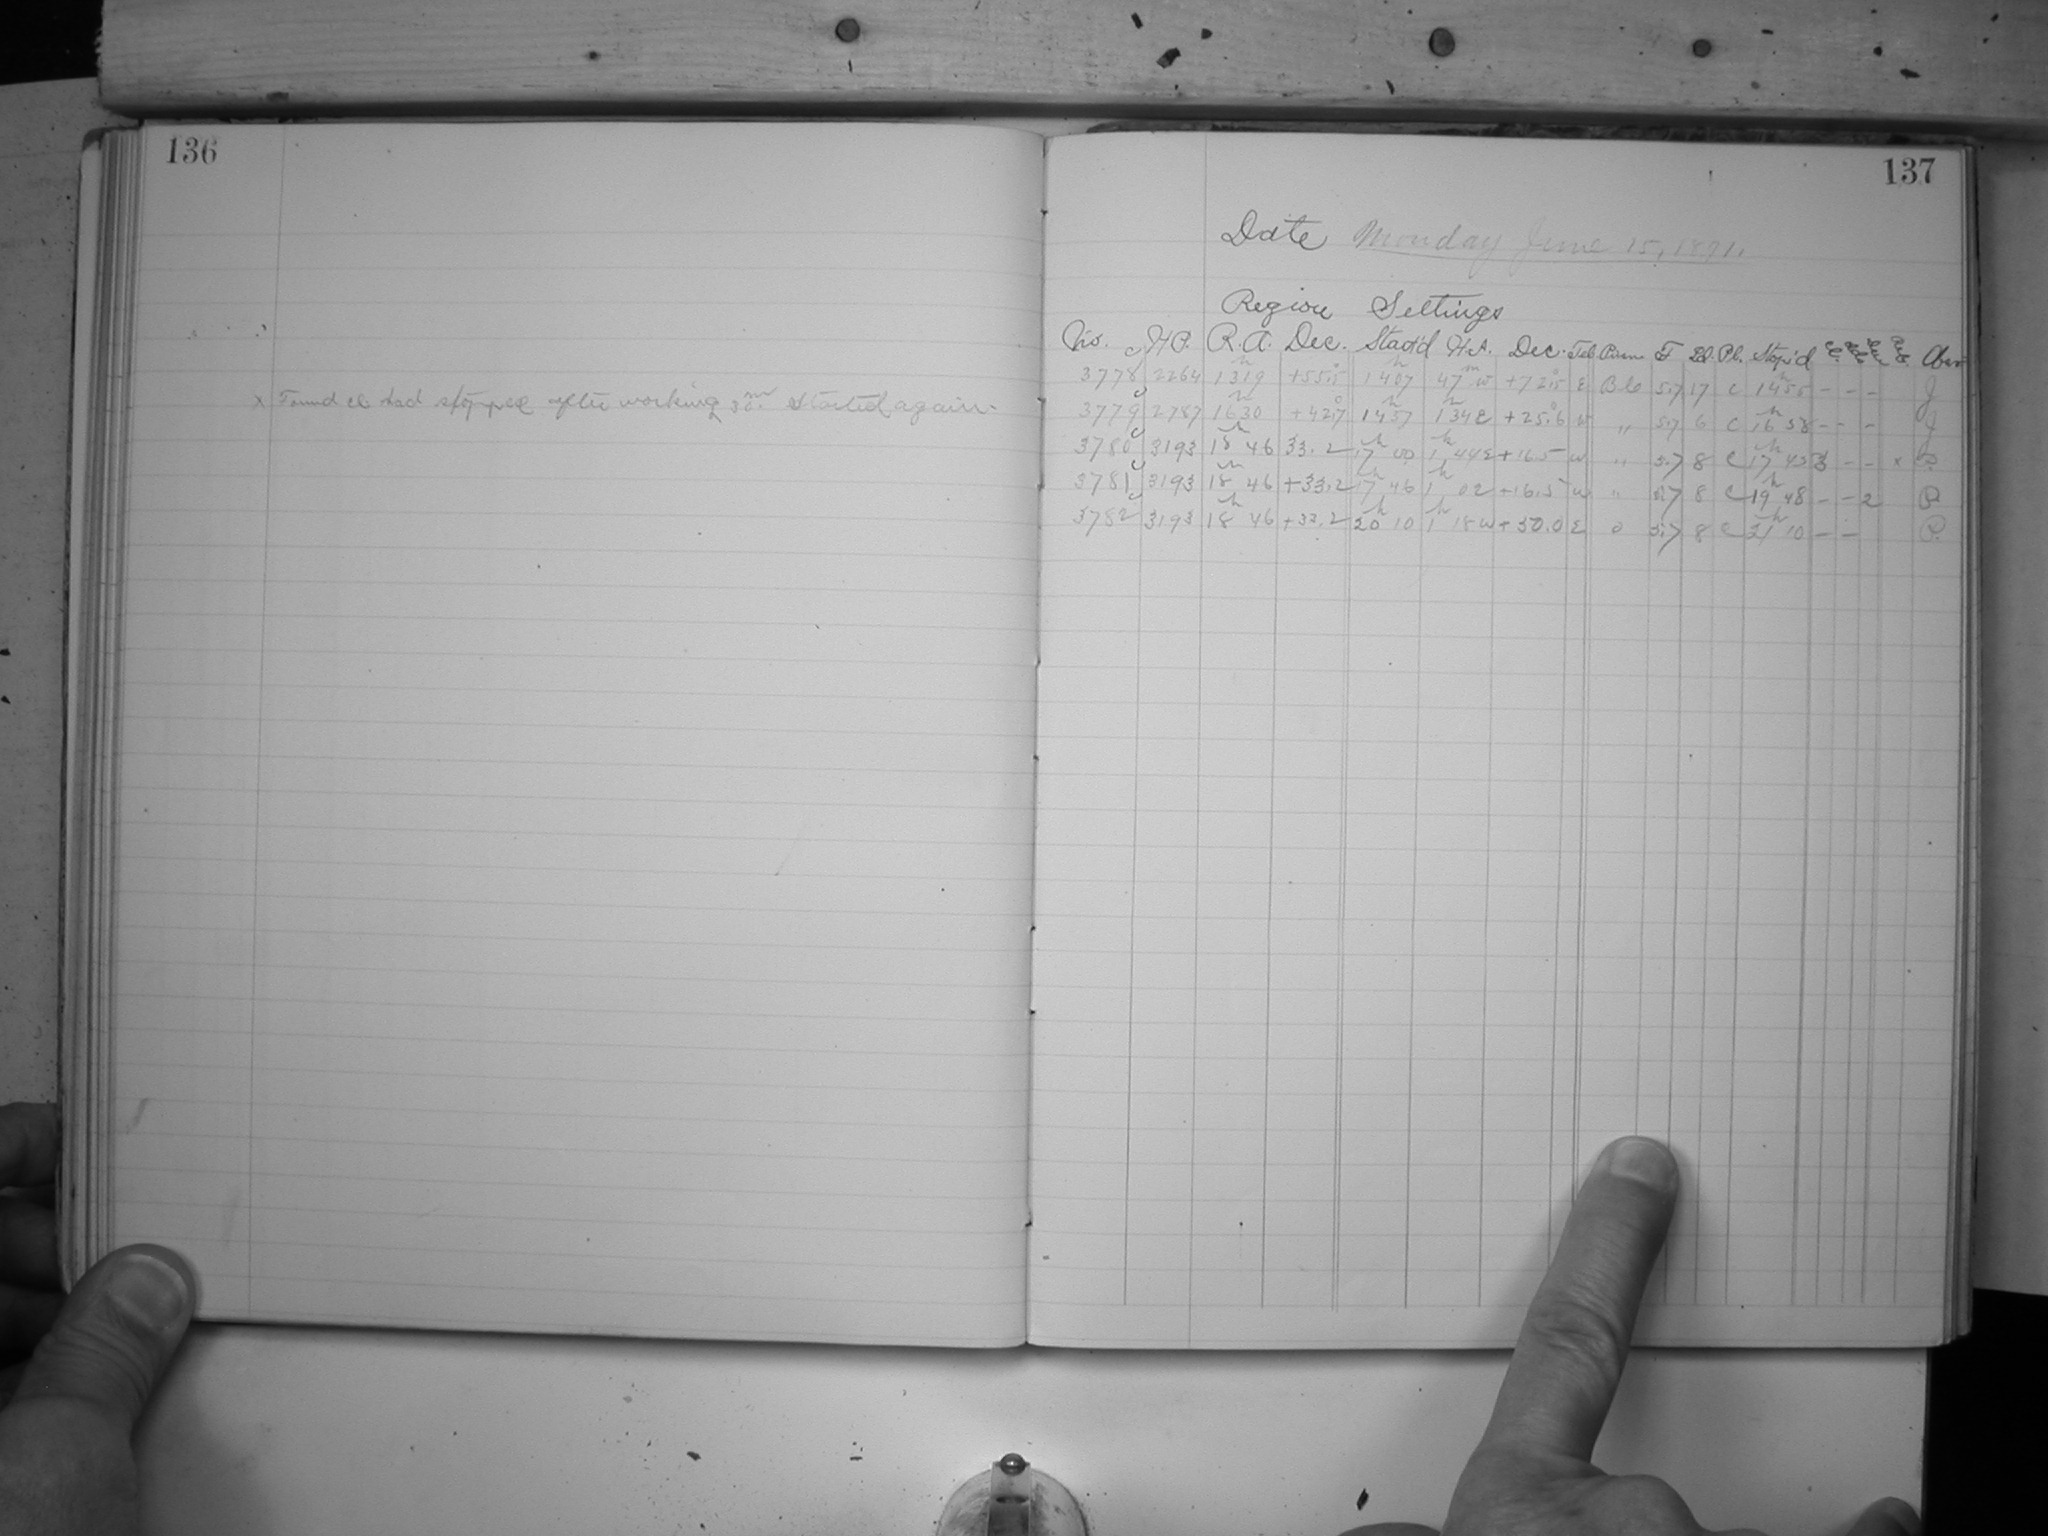 136
x Found cl. had stopped after working 30m. Started again.
137
Date Monday June 15, 1891.
Region Settings
No. H.P. R.A. Dec. Start'd H.A. Dec. Tel. Prism F Pl. Ph. Stop'd Cl. Obs.
3778 c 2264 13h19 +55.5 14h07 47m W +72.5 E Blo 5.7 17 c 14h55 - - - J
3779 c 2787 16h30 +42.7 14h57 1h34 E +25.6 W " 5.7 6 c 16h58 - - - J
3780 c 3193 18h 46 33.2 17h 00 1h 44 E +16.5 W " 5.7 8 c 17h 45 3 - - x P.
3781 c 3193 18h 46 +33.2 17h 46 1h 02 +16.5 W " 5.7 8 c 19h 48 - - 2 P
3782 c 3193 18h 46 +33.2 20h 10 1h 18 W +50.0 E 5.7 8 c 21h 10 - - P.